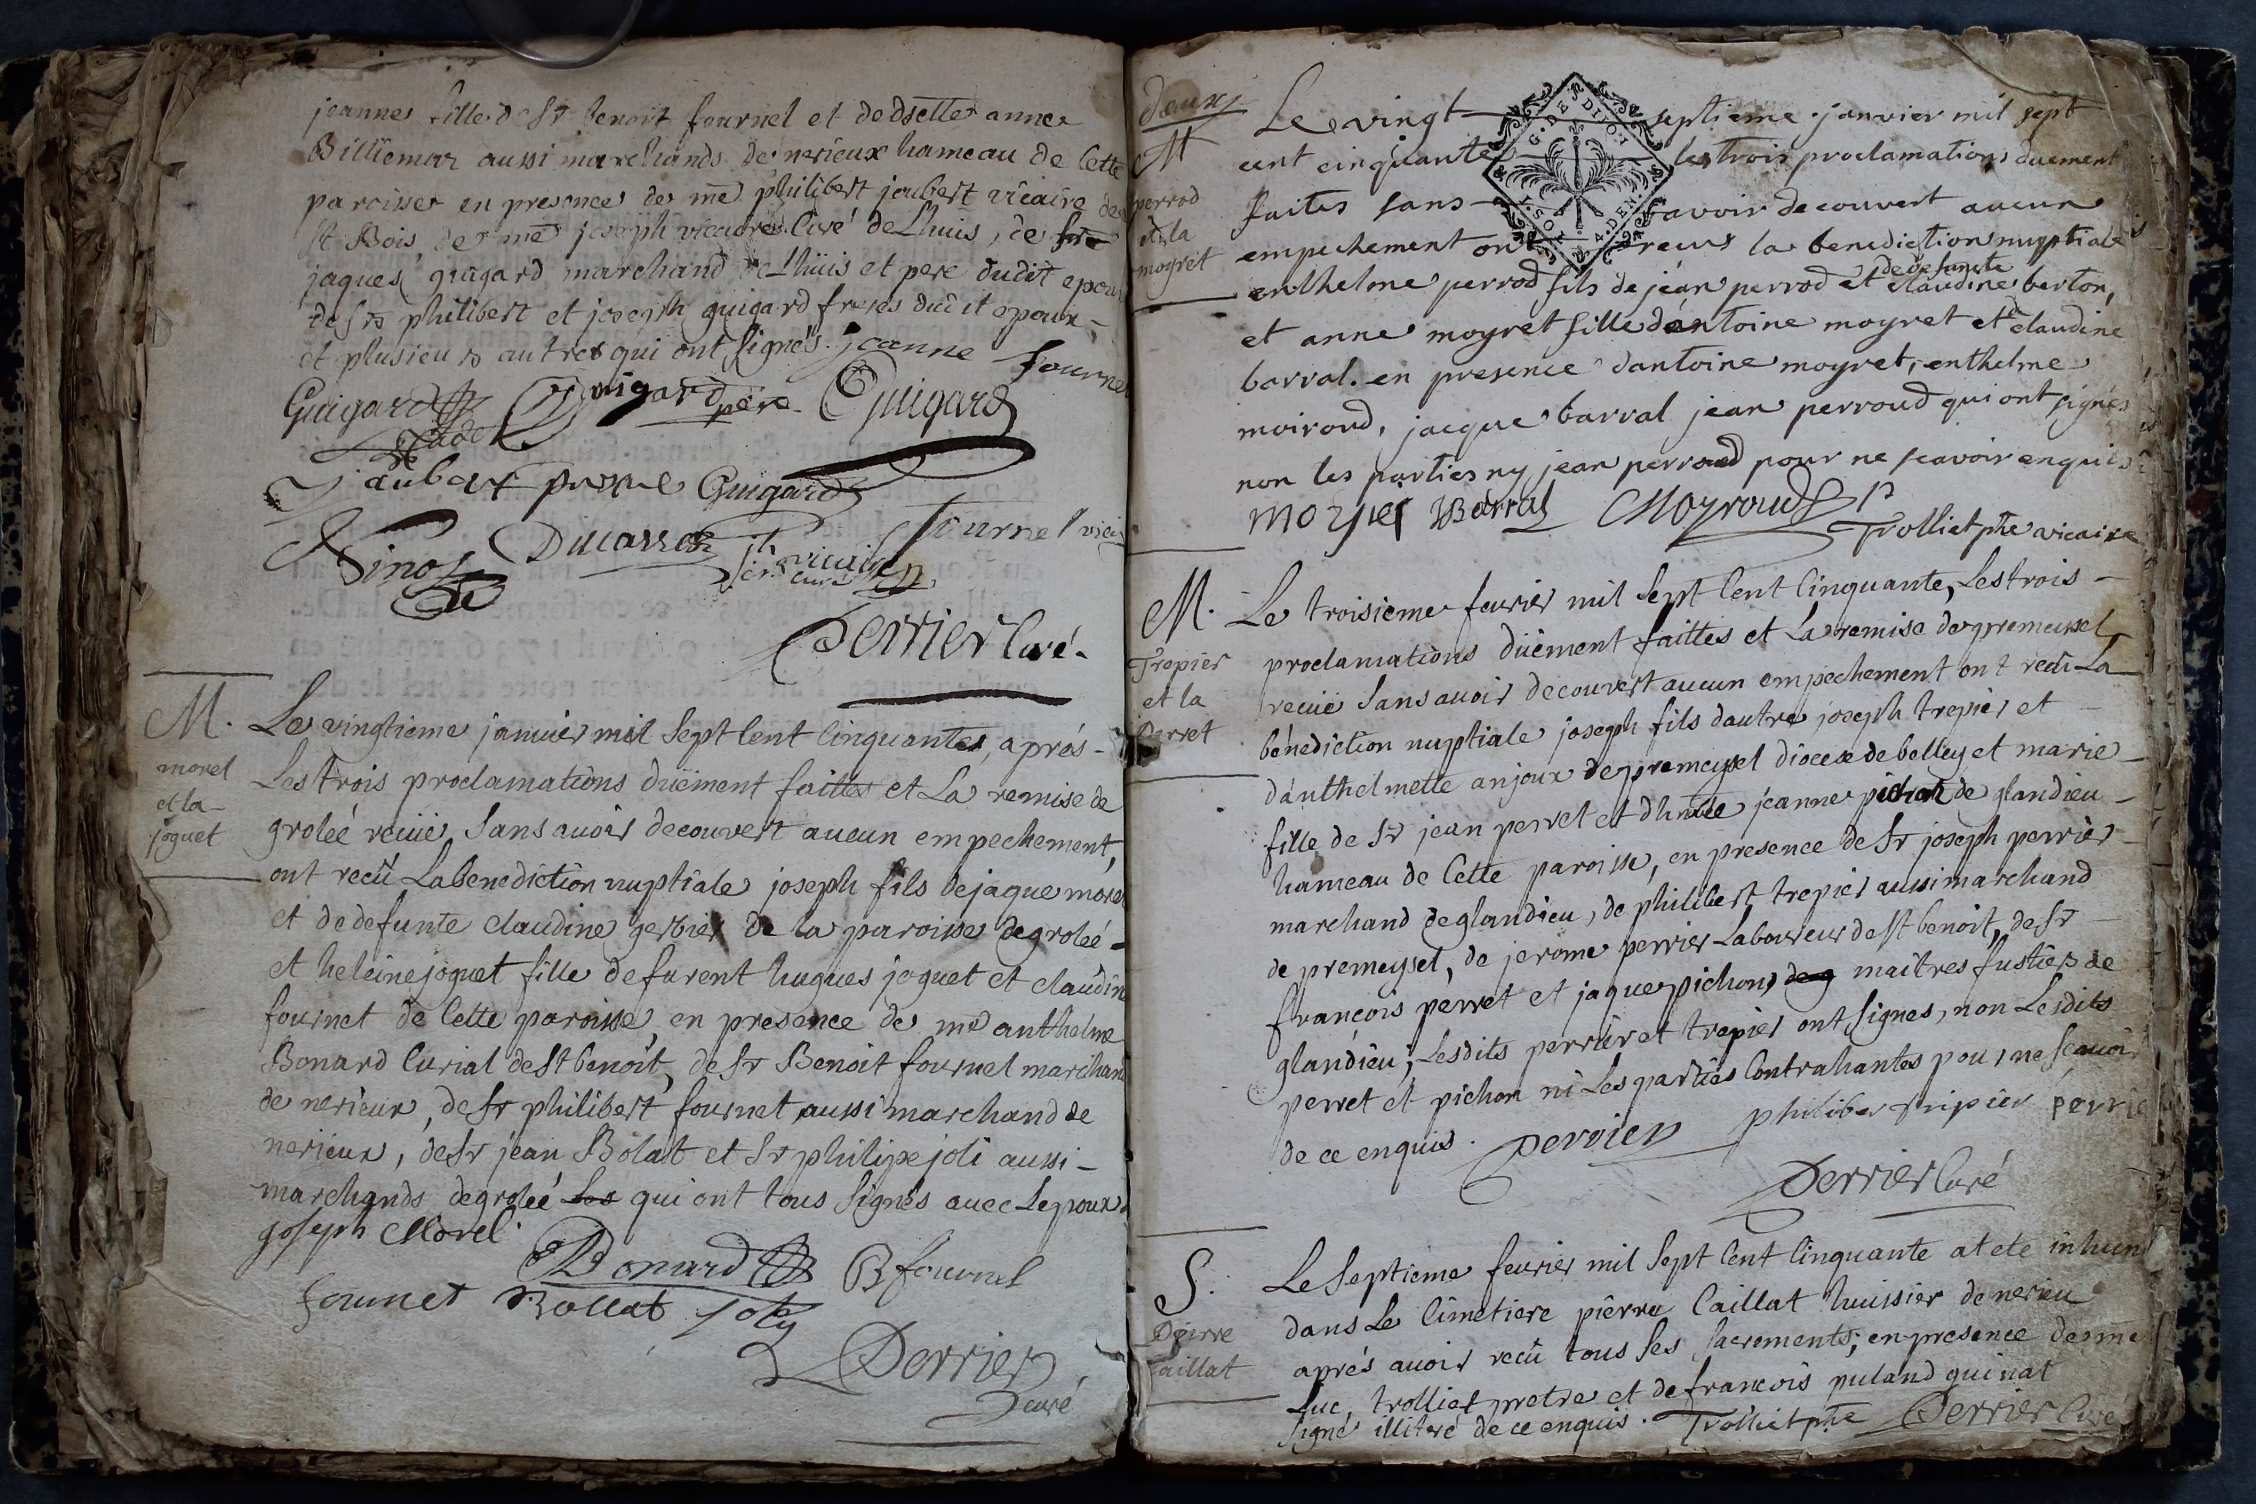 jeanne fille de Sr benoit fournel et de dselle anne
Billiemaz aussi marchands de nerieux hameau de Cette
paroisse en presence de me philibert joubert vicaire de
st Bois, de me joseph vicaire Curé de Lhuis, de sre
jaques guigard marchand de Lhuis et pere dudit epoux
de srs philibert et joseph guigard freres dudit epoux
et plusieurs autres qui ont signés. jeanne fournel
Guigard Guigard pere Guigard
jaubert Guigard
Ducarre fournel
vicaire curé
Perrier Curé.
M.
morel
et la
joguet
Le vingtieme januier mil Sept Cent Cinquante, aprés
Les trois proclamations duëment faittes et La remise de
groleé recuë Sans auoir decouvert aucun empechement,
ont recû La benediction nuptiale joseph fils de jaque morel
et de defunte claudine gerbier de la paroisse de groleé
et heleine joguet fille de furent hugues joguet et claudine
fournet de Cette paroisse, en presence de me anthelme
Bonard Curial de St benoit, de Sr Benoit fournel marchand
de nerieux, de Sr philibert fournet aussi marchand de
nerieux, de Sr jean Bolat et Sr philipe joli aussi
marchands de groleé Les qui ont tous Signés auec Lepoux
joseph Morel.
Bonard B fournel
fournet Bollat Joly
Perrier
curé
deux
M
perrod
et la
moyret
G. D. DIJO.
Le vingt septieme janvier mil sept
cent cinquante les trois proclamations duement
faites sans avoir decouvert aucun
empechement ont recus la benediction nuptiale
enthelme perrod fils de jéan perrod et de defuncte claudine berton,
et anne moyret fille dántoine moyret et claudine
barral. en presence dantoine moyret, enthelme
moiroud, jacque barral jean perroud qui ont signés
non les parties ny jean perroud pour ne scavoir enquis
moyret Barral Moyroud
Trolliet ptre vicaire
M.
Trepier
et la
Perret
Le troisieme feurier mil Sept Cent Cinquante, Les trois
proclamations düement faittes et La remise de premeysel
recuë Sans auoir decouvert aucun empechement ont recû La
bénediction nuptiale joseph fils dautre joseph trepier et
dánthelmette anjoux de premeysel diocese de belley et marie
fille de Sr jean perret et dhnête jeanne pichon de glandieu
hameau de Cette paroisse, en presence de Sr joseph perrier
marchand de glandieu, de philibert trepier aussi marchand
de premeysel, de jerome perrier Laboureur de St benoit, de Sr
françois perret et jaque pichon de g maitres fustiers de
glandieu; Lesdits perrier et trepier ont Signes, non Lesdits
perret et pichon ni Les parties Contrahantes pour ne Scauoir
de ce enquis. perrier philiber tripier perrie
Perrier Curé
S.
Pierre
Caillat
Le Septieme feurier mil Sept Cent Cinquante at eté inhumé
dans Le Cimetiere piêrre Caillat huissier de nerieu
aprés auoir recû tous Ses Sacrements; en presence de me
Luc trolliet pretre et de francois puland qui nat
signé illiteré de ce enquis. Trolliet ptre Perrier Curé